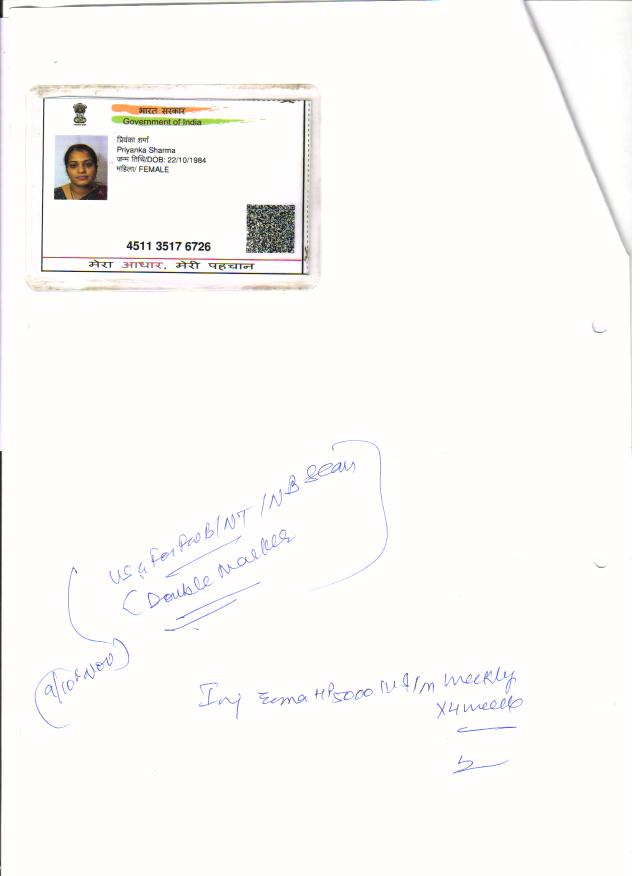 भारत सरकार
Government of India
प्रियंका शर्मा
Priyanka Sharma
जन्म तिथि/DOB: 22/10/1984
महिला/ FEMALE
4511 3517 6726
मेरा आधार, मेरी पहचान
USG For FWB/NT /NB Scan
(Double Marker
9/10th Nov
Inj Ecma HP 5000 IU I/M Weekly
X4 weeks